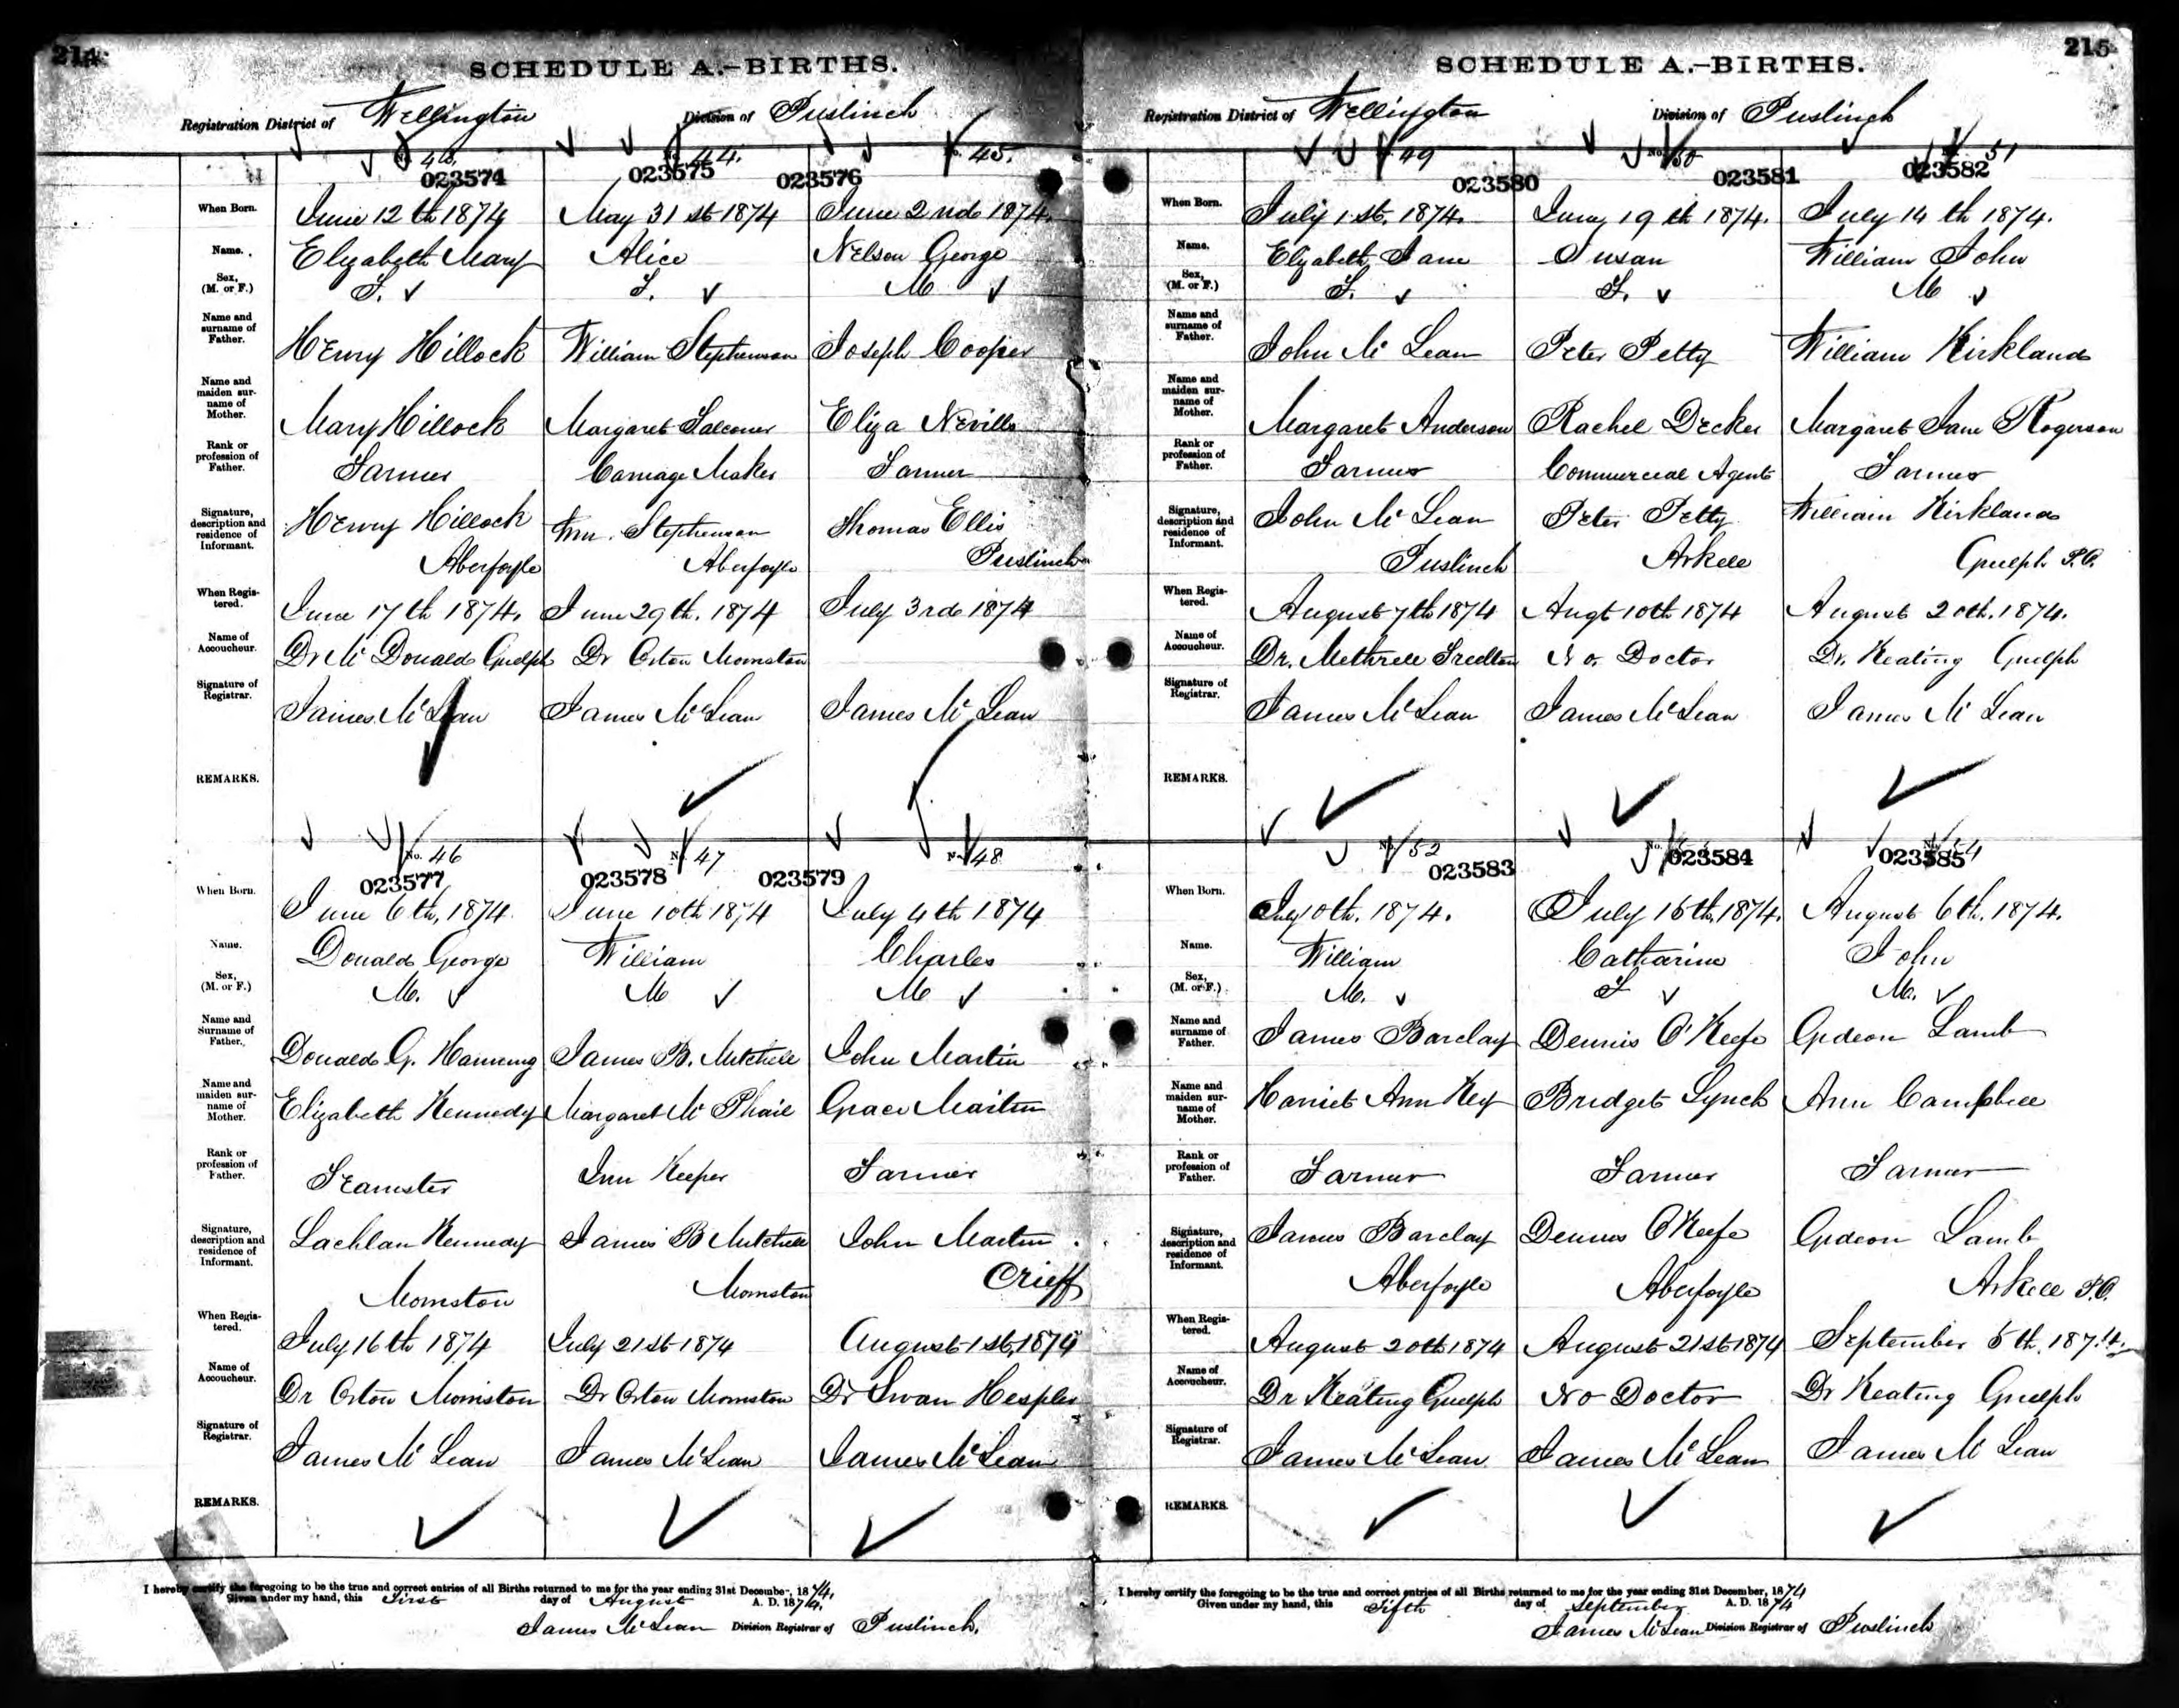 214
SCHEDULE A.-BIRTHS.
Registration District of Wellington Division of Puslinch
No. 43. No. 44. No. 45.
023574 023575 023576
When Born. June 12th 1874 May 31st 1874 June 2nd 1874.
Name. Elizabeth Mary Alice Nelson George
Sex, (M. or F.) F. F. M
Name and surname of Father. Henry Hillock William Stephenson Joseph Cooper
Name and maiden surname of Mother. Mary Hillock Margaret Falconer Eliza Neville
Rank or profession of Father. Farmer Carriage Maker Farmer
Signature, description and residence of Informant. Henry Hillock Wm. Stephenson Thomas Ellis
Aberfoyle Aberfoyle Puslinch
When Registered. June 17th 1874. June 29th. 1874 July 3rd 1874
Name of Accoucheur. Dr Mc Donald Guelph Dr Orton Morriston
Signature of Registrar. James Mc Lean James McLean James Mc Lean
REMARKS.
No. 46 No. 47 No. 48
023577 023578 023579
When Born. June 6th, 1874. June 10th 1874 July 4th 1874
Name. Donald George William Charles
Sex, (M. or F.) M. M M
Name and Surname of Father. Donald G. James B. Mitchell John Martin
Name and maiden surname of Mother. Elizabeth Kennedy Margaret Mc Phail Grace Martin
Rank or profession of Father. Teamster Inn Keeper Farmer
Signature, description and residence of Informant. Lachlan Kennedy James B Mitchell John Martin
Morriston Morriston Crieff
When Registered. July 16th 1874 July 21st 1874 August 1st, 1874
Name of Accoucheur. Dr Orton Morriston Dr Orton Morriston Dr Swan Hespler
Signature of Registrar. James Mc Lean James McLean James McLean
REMARKS.
I hereby certify the foregoing to be the true and correct entries of all Births returned to me for the year ending 31st December, 1874.
Given under my hand, this First day of August A. D. 1874.
James McLean Division Registrar of Puslinch.
215
SCHEDULE A.-BIRTHS.
Registration District of Wellington Division of Puslinch
49 No. 50 51
023580 023581 023582
When Born. July 1st. 1874. June 19th 1874. July 14th 1874.
Name. Elizabeth Jane Susan William John
Sex, (M. or F.) F. F. M
Name and surname of Father. John Mc Lean Peter Petty William Kirkland
Name and maiden surname of Mother. Margaret Anderson Rachel Decker Margaret Jane Rogerson
Rank or profession of Father. Farmer Commercial Agent Farmer
Signature, description and residence of Informant. John Mc Lean Peter Petty William Kirkland
Puslinch Arkell Guelph P.O.
When Registered. August 7th 1874 Augt 10th 1874 August 20th. 1874.
Name of Accoucheur. Dr. No. Doctor Dr. Keating Guelph
Signature of Registrar. James McLean James McLean James Mc Lean
REMARKS.
No. 52 No. No. 54
023583 023584 023585
When Born. July 10th. 1874. July 15th, 1874. August 6th. 1874.
Name. William Catharine John
Sex, (M. or F.) M. F M.
Name and surname of Father. James Barclay Dennis O'Keefe Gideon Lamb
Name and maiden surname of Mother. Harriet Ann Key Bridget Lynch Ann Campbell
Rank or profession of Father. Farmer Farmer Farmer
Signature, description and residence of Informant. James Barclay Dennis O'Keefe Gideon Lamb
Aberfoyle Aberfoyle Arkell P.O.
When Registered. August 20th 1874 August 21st 1874 September 5th. 1874.
Name of Accoucheur. Dr Keating Guelph No Doctor Dr Keating Guelph
Signature of Registrar. James McLean James Mc Lean James Mc Lean
REMARKS.
I hereby certify the foregoing to be the true and correct entries of all Births returned to me for the year ending 31st December, 1874
Given under my hand, this Fifth day of September A. D. 1874
James McLean Division Registrar of Puslinch